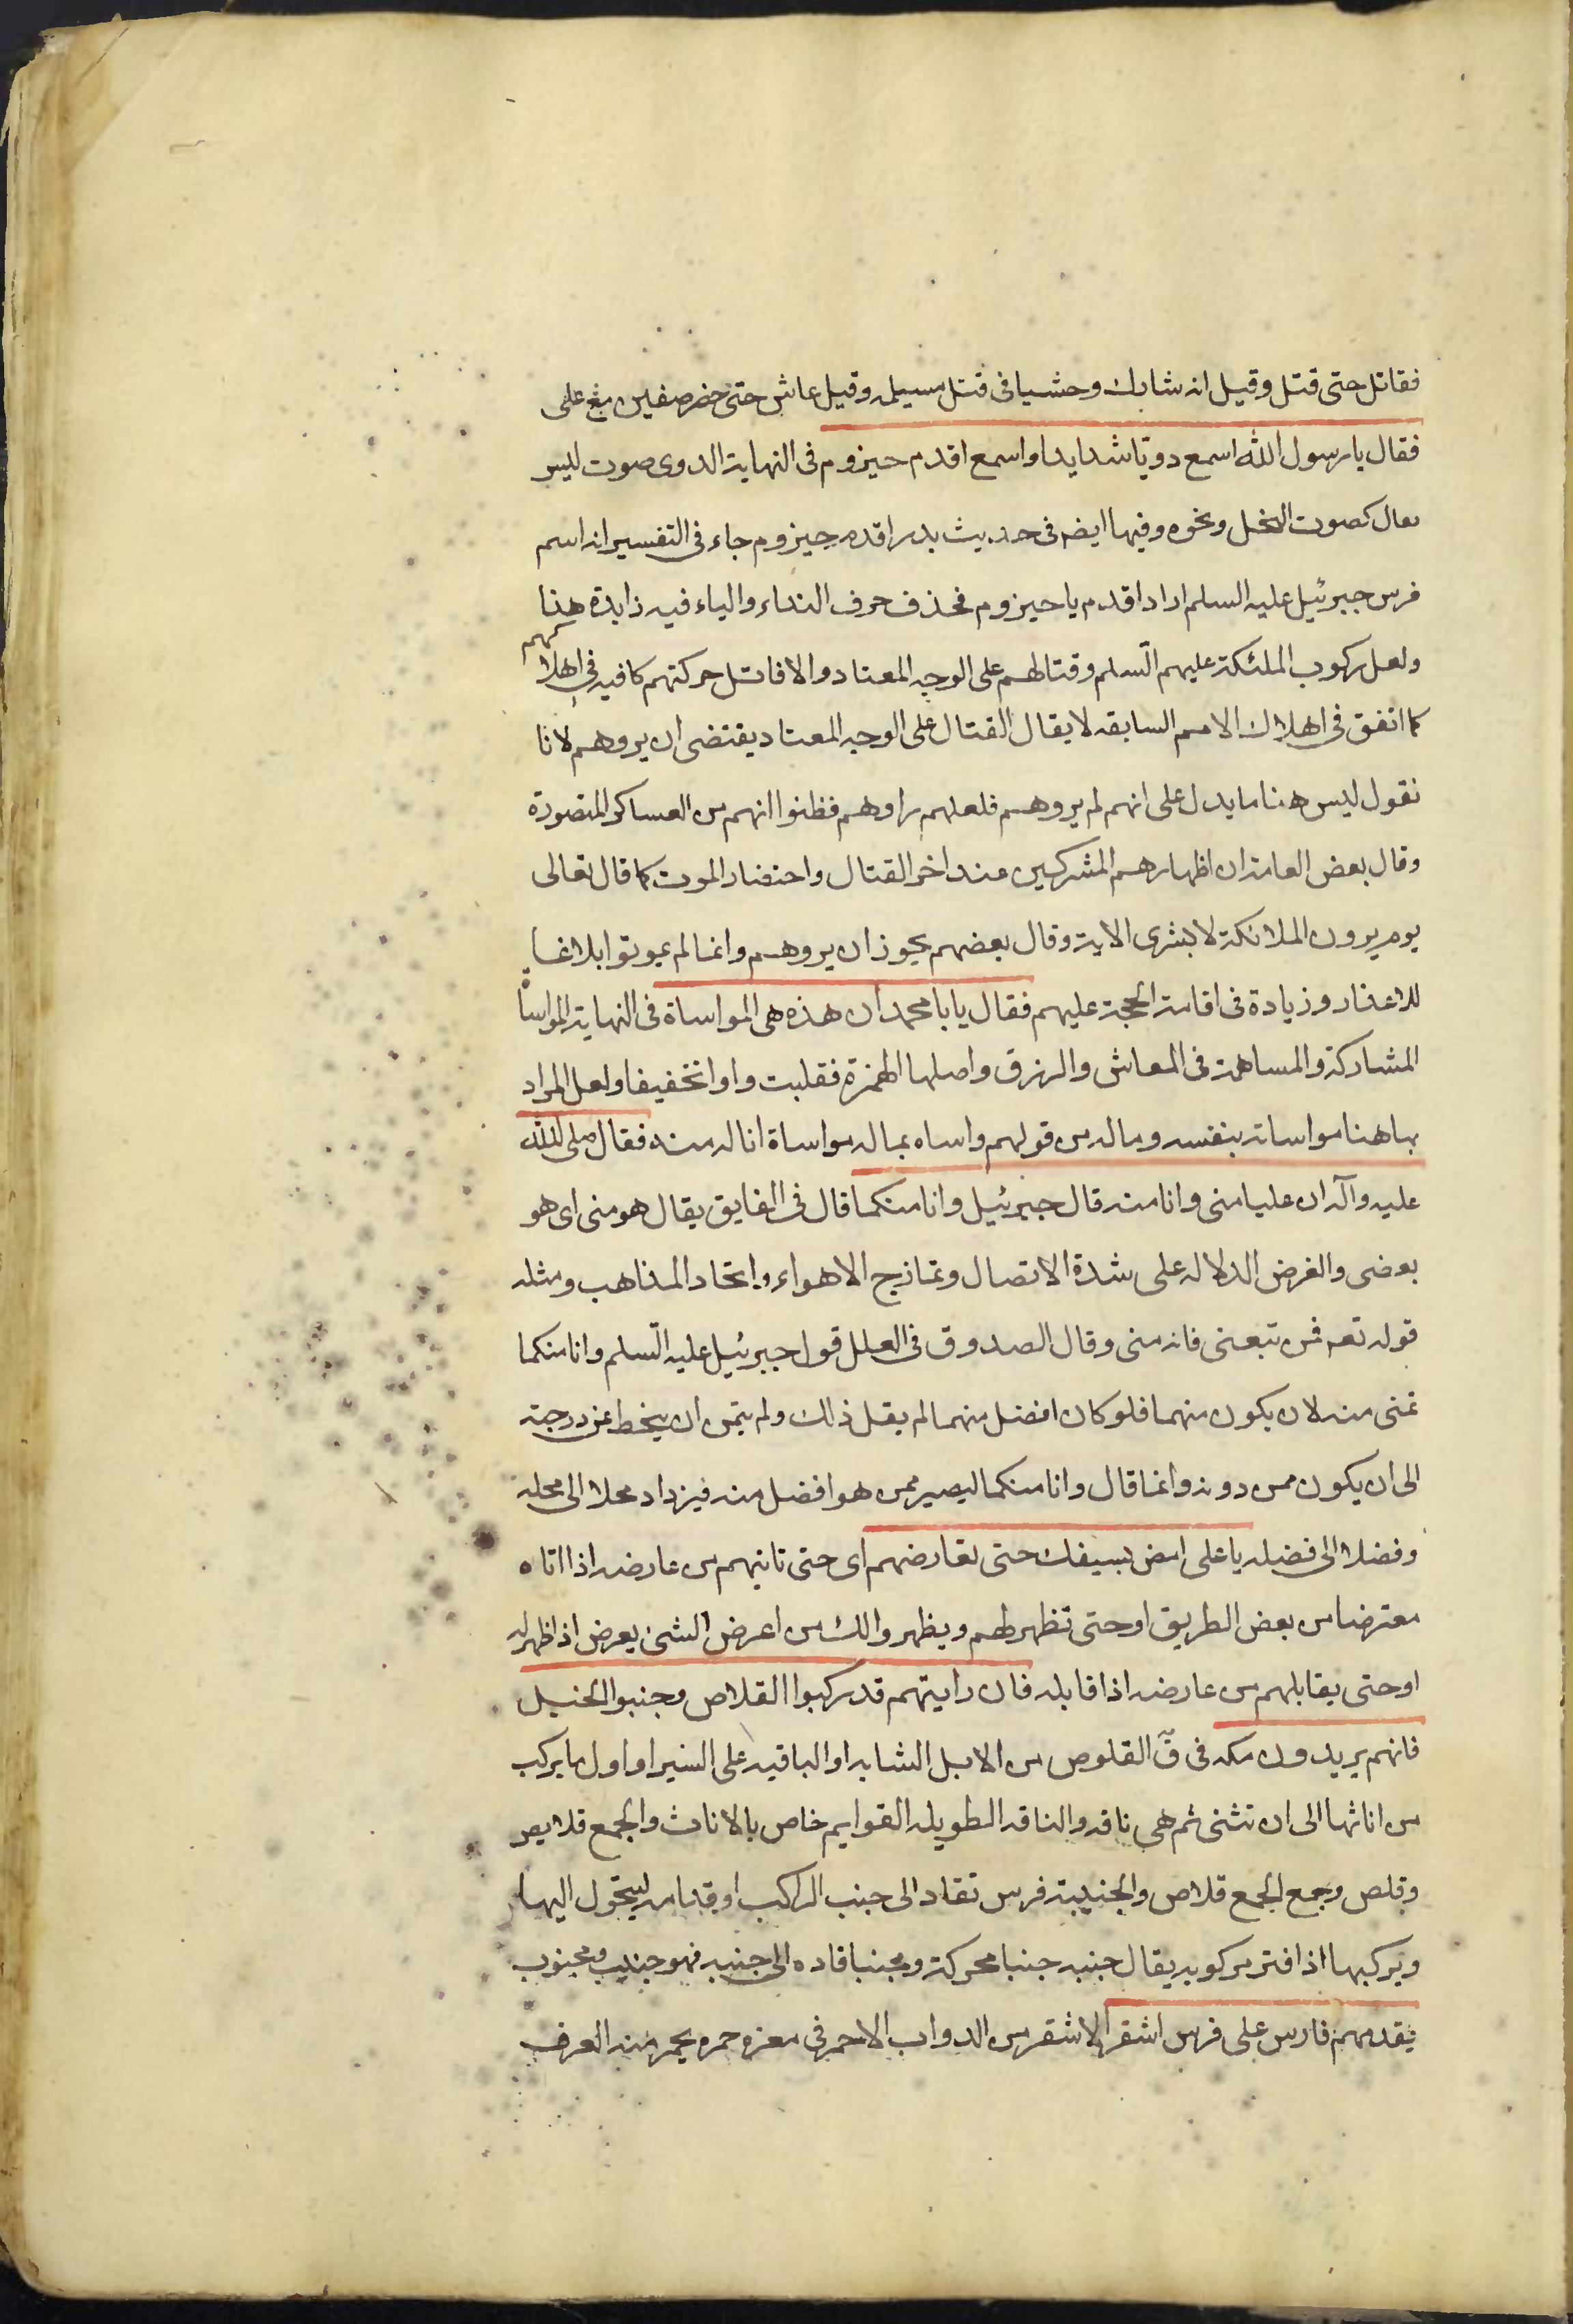 فقاتل حتى قتل وقيل انه شارك وحشيا فى قتل مسيلمه وقيل عاش حتى حضر صفين مع على
فقال يا رسول الله اسمع دويّا شديدا واسمع اقدم حيزوم فى النهاية الدوى صوت ليس
بعال كصوت النخل ونحوه وفيها ايضه فى حديث بدر اقدم حيزوم جاء فى التفسير انه اسم
فرس جبرئيل عليه السلم اراد اقدم يا حيزوم فحذف حرف النداء والياء فيه زايدة هذا
ولعل ركوب الملئكة عليهم السّلم وقتالهم على الوجه المعتاد والا فاقل حركتهم كافيه فى اهلاكهم
كما اتفق فى اهلاك الامم السابقه لا يقال القتال على الوجه المعتاد يقتضى ان يروهم لانا
نقول ليس هنا ما يدل على انهم لم يروهم فلعلهم راوهم فظنوا انهم من العساكر المنصورة
وقال بعض العامة ان اظهارهم المشركين عند اخر القتال واحتضار الموت كما قال تعالى
يوم يرون الملائكة لا بشرى الاية وقال بعضهم يجوز ان يروهم وانما لم يموتوا ابلاغا
للاعذار وزيادة فى اقامة الحجة عليهم فقال يا با محمد ان هذه هى المواساة فى النهاية المواساة
المشاركة والمساهمة فى المعاش والرزق واصلها الهمزة فقلبت واوا تخفيفا ولعل المراد
بها هنا مواساته بنفسه وماله من قولهم واساه بماله مواساة اناله منه فقال صلى الله
عليه وآله ان عليا منى وانا منه قال جبرئيل وانا منكما قال فى الفايق يقال هو منى اى هو
بعضى والغرض الدلاله على شدة الاتصال وتمازج الاهواء واتحاد المذاهب ومثله
قوله تعه فمن تبعنى فانه منى وقال الصدوق فى العلل قول جبرئيل عليه السّلم وانا منكما
تمنى منه لان يكون منهما فلو كان افضل منهما لم يقل ذلك ولم يتمن ان ينحط عن درجته
الى ان يكون ممن دونه وانما قال وانا منكما ليصير ممن هو افضل منه فيزداد محلا الى محله
وفضلا الى فضيله يا على امض بسيفك حتى تعارضهم اى حتى تاتيهم من عارضه اذا اتاه
معترضا من بعض الطريق او حتى تظهر لهم ويظهروا لك من اعرض الشئ يعرض اذا ظهر له
او حتى يقابلهم من عارضه اذا قابله فان رايتهم قد ركبوا القلاص وجنبوا الخيل
فانهم يريدون مكه فى قٓ القلوص من الابل الشابه او الباقيه على السير او اول ما يركب
من اناثها الى ان تثنى ثم هى ناقه والناقه الطويله القوايم خاص بالاناث والجمع قلايص
وقلص وجمع الجمع قلاص والجنيبة فرس تقاد الى جنب الراكب او قدامه ليتحول اليها
ويركبها اذا فتر مركوبه يقال جنبه جنبا محركة ومجنبا قاده الى جنبه فهو جنيب ومجنوب
يقدمهم فارس على فرس اشقر الاشقر من الدواب الاحمر فى مغرة حمره يحمر منه العرف